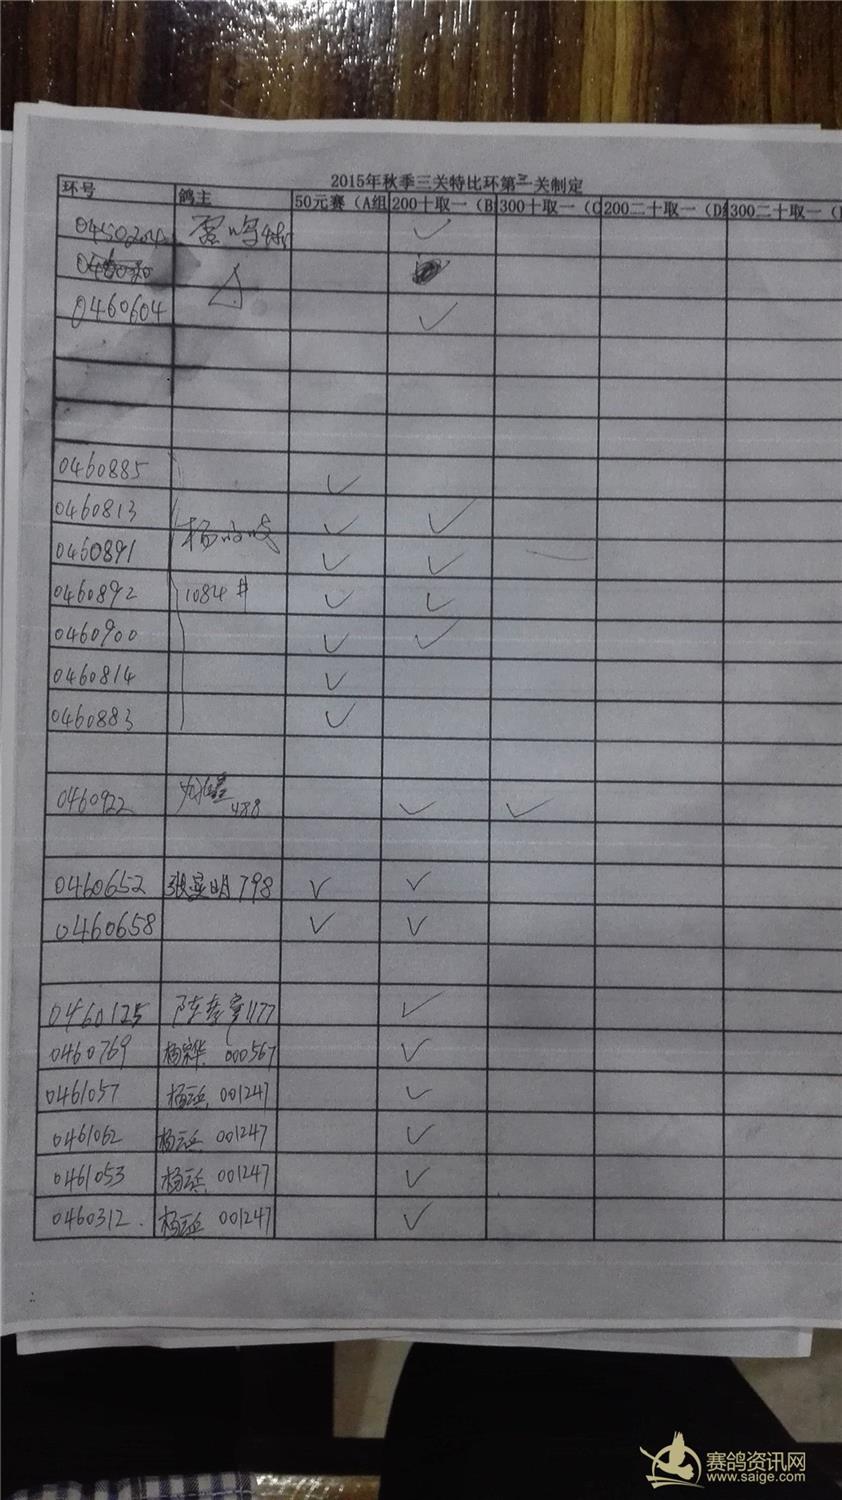 2015年秋季三关特比环第三关制定
环号 鸽主 50元赛（A组 200十取一（B 300十取一（C 200二十取一（D组 300二十取一（
✓
0460604 ✓
0460885 ✓
0460813 ✓ ✓
0460891 杨 ✓ ✓
0460892 1084# ✓ ✓
0460900 ✓ ✓
0460814 ✓
0460883 ✓
0460922 488 ✓ ✓
0460652 张 明 798 ✓ ✓
0460658 ✓ ✓
0460125 陈 1177 ✓
0460769 杨 000567 ✓
0461057 杨 001247 ✓
0461062 杨 001247 ✓
0461053 杨 001247 ✓
0460312. 杨 001247 ✓
赛鸽资讯网
www.saige.com